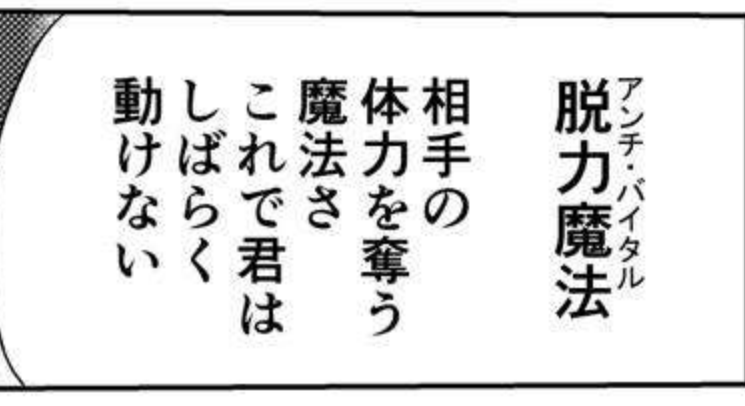 脱力魔法
アンチ・バイタル
相手の
体力を奪う
魔法さ
これで君は
しばらく
動けない